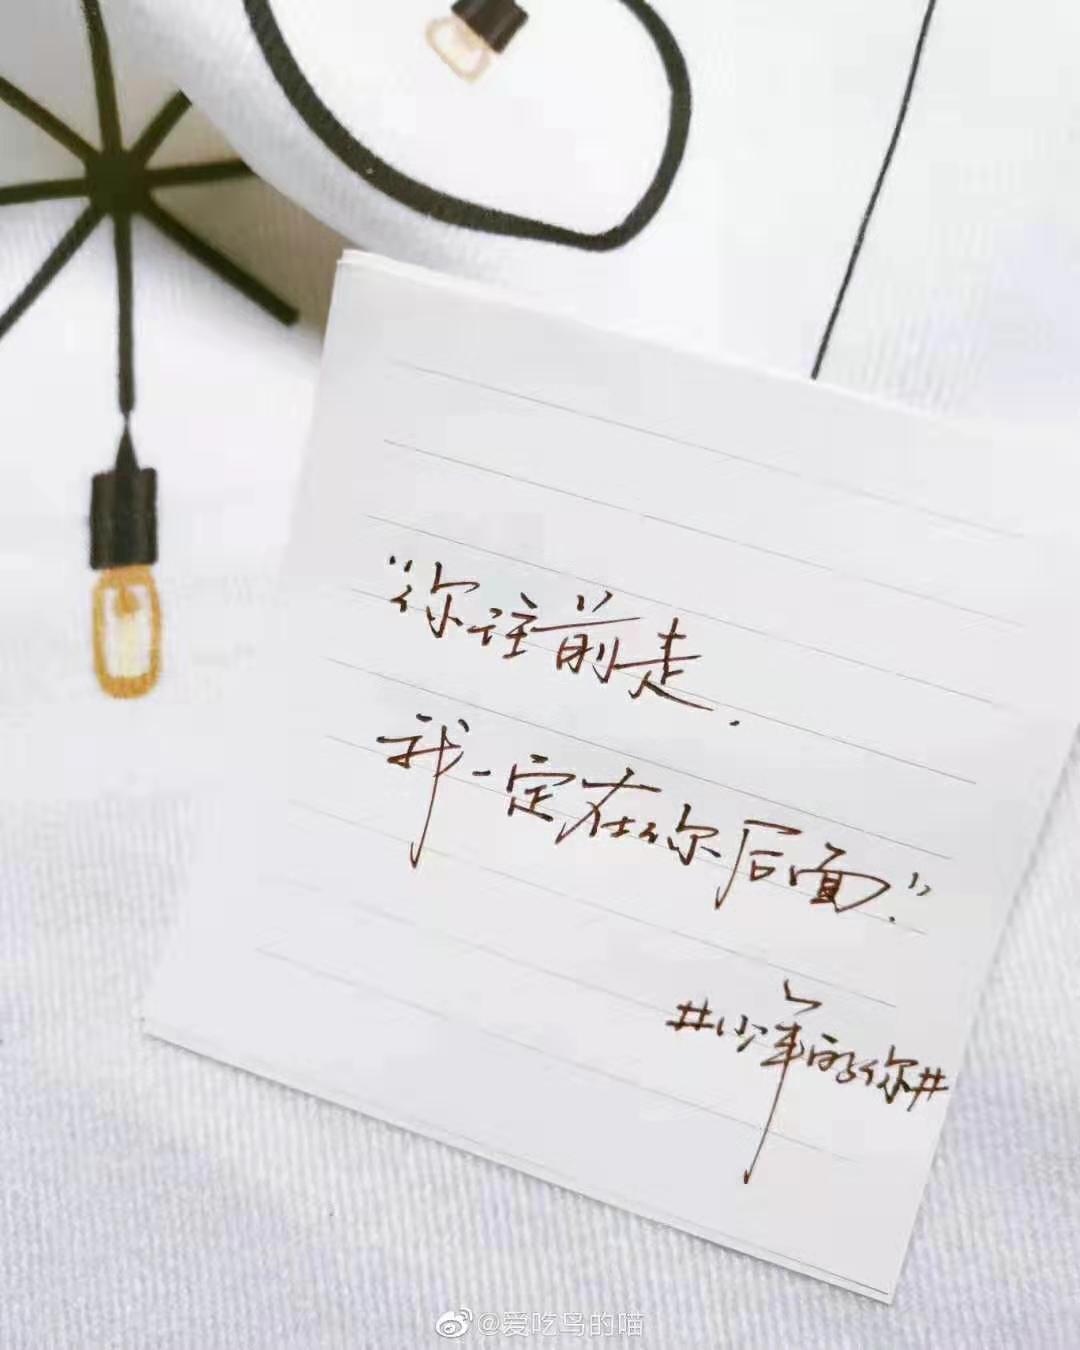 “你往前走.
我一定在你后面.”
#少年的你#
@爱吃鸟的喵